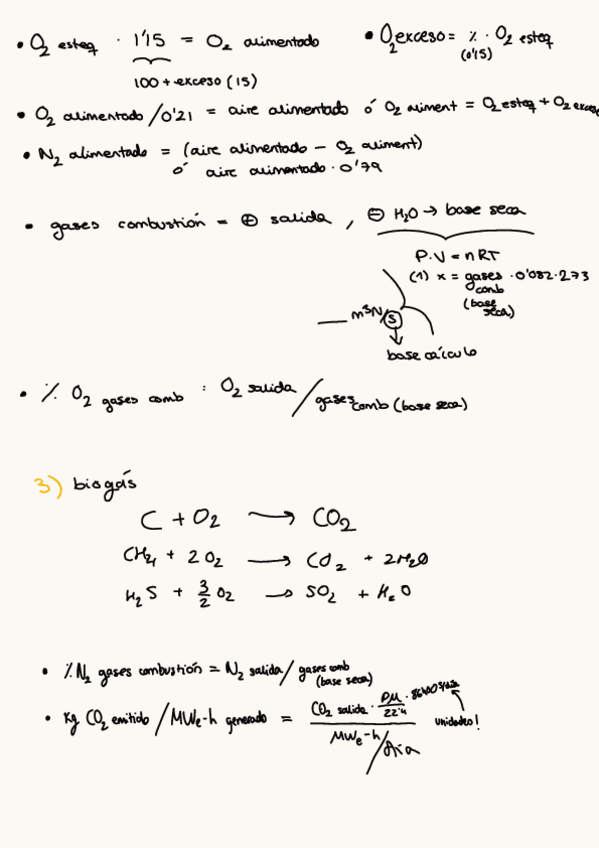 • O₂ esteq · 1'15 = O₂ alimentado
100 + exceso (15)
• O₂ exceso = % · O₂ esteq
(0'15)
• O₂ alimentado / 0'21 = aire alimentado ó O₂ aliment = O₂ esteq + O₂ exceso
• N₂ alimentado = (aire alimentado - O₂ aliment)
ó aire alimentado · 0'79
• gases combustión = ⊕ salida, ⊖ H₂O → base seca
P.V = nRT
(1) x = gases comb (base seca) · 0'082 · 273
m³N/s
base cálculo
• % O₂ gases comb : O₂ salida / gases comb (base seca)
3) biogás
C + O₂ → CO₂
CH₄ + 2O₂ → CO₂ + 2H₂O
H₂S + 3/2 O₂ → SO₂ + H₂O
• % N₂ gases combustión = N₂ salida / gases comb (base seca)
• Kg CO₂ emitido / MWe-h generado = CO₂ salida · PM/22'4 · 86400 s/día
MWe-h/día
unidades!